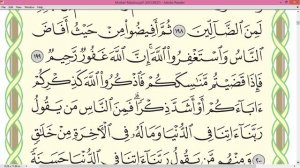 لَمِنَ ٱلضَّآلِّينَ ١٩٨ ثُمَّ أَفِيضُوا۟ مِنْ حَيْثُ أَفَاضَ
ٱلنَّاسُ وَٱسْتَغْفِرُوا۟ ٱللَّهَ إِنَّ ٱللَّهَ غَفُورٌ رَّحِيمٌ ١٩٩
فَإِذَا قَضَيْتُم مَّنَـٰسِكَكُمْ فَٱذْكُرُوا۟ ٱللَّهَ كَذِكْرِكُمْ
ءَابَآءَكُمْ أَوْ أَشَدَّ ذِكْرًا فَمِنَ ٱلنَّاسِ مَن يَقُولُ
رَبَّنَآ ءَاتِنَا فِى ٱلدُّنْيَا وَمَا لَهُۥ فِى ٱلْـَٔاخِرَةِ مِنْ خَلَـٰقٍ
٢٠٠ وَمِنْهُم مَّن يَقُولُ رَبَّنَآ ءَاتِنَا فِى ٱلدُّنْيَا حَسَنَةً